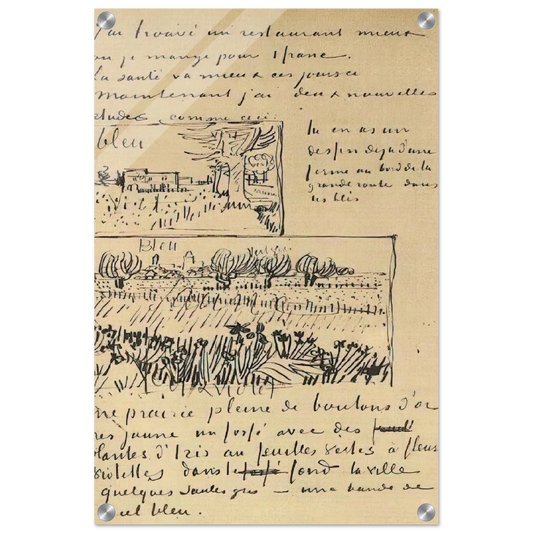 j'ai trouvé un restaurant mieux
ou je mange pour 1 franc.
La santé va mieux ces jours ci
Maintenant j'ai deux nouvelles
etudes comme ceci:
bleu
tu en as un
dessin deja d'une
ferme au bord de la
grande route dans
les blés
Bleu
Violet
ne prairie pleine de boutons d'or
res jaune un fossé avec des
plantes d'Iris au feuilles vertes à fleurs
violettes dans le fossé fond la ville
quelques saules gris — une bande de
iel bleu.